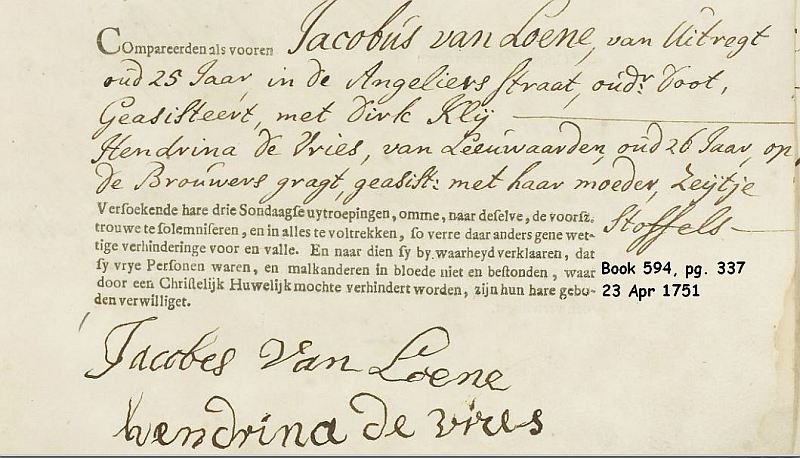 Compareerden als vooren Jacobus van Loene, van Uitregt
oud 25 Jaar, in de Angeliers straat, oudr. doot,
Geasisteert, met Dirk Klij
Hendrina de Vries, van Leeuwaarden, oud 26 Jaar, op
de Brouwers gragt, geasist: met haar moeder, Zeijtje
Stoffels
Versoekende hare drie Sondaagse uytroepingen, omme, naar deselve, de voorsz.
trouwe te solemniseren, en in alles te voltrekken, so verre daar anders gene wet-
tige verhinderinge voor en valle. En naar dien sy by waarheyd verklaaren, dat
sy vrye Personen waren, en malkanderen in bloede niet en bestonden, waar
door een Christelijk Huwelijk mochte verhindert worden, zijn hun hare gebo-
den verwilliget.
Book 594, pg. 337
23 Apr 1751
Jacobes Van Loene
hendrina de vries